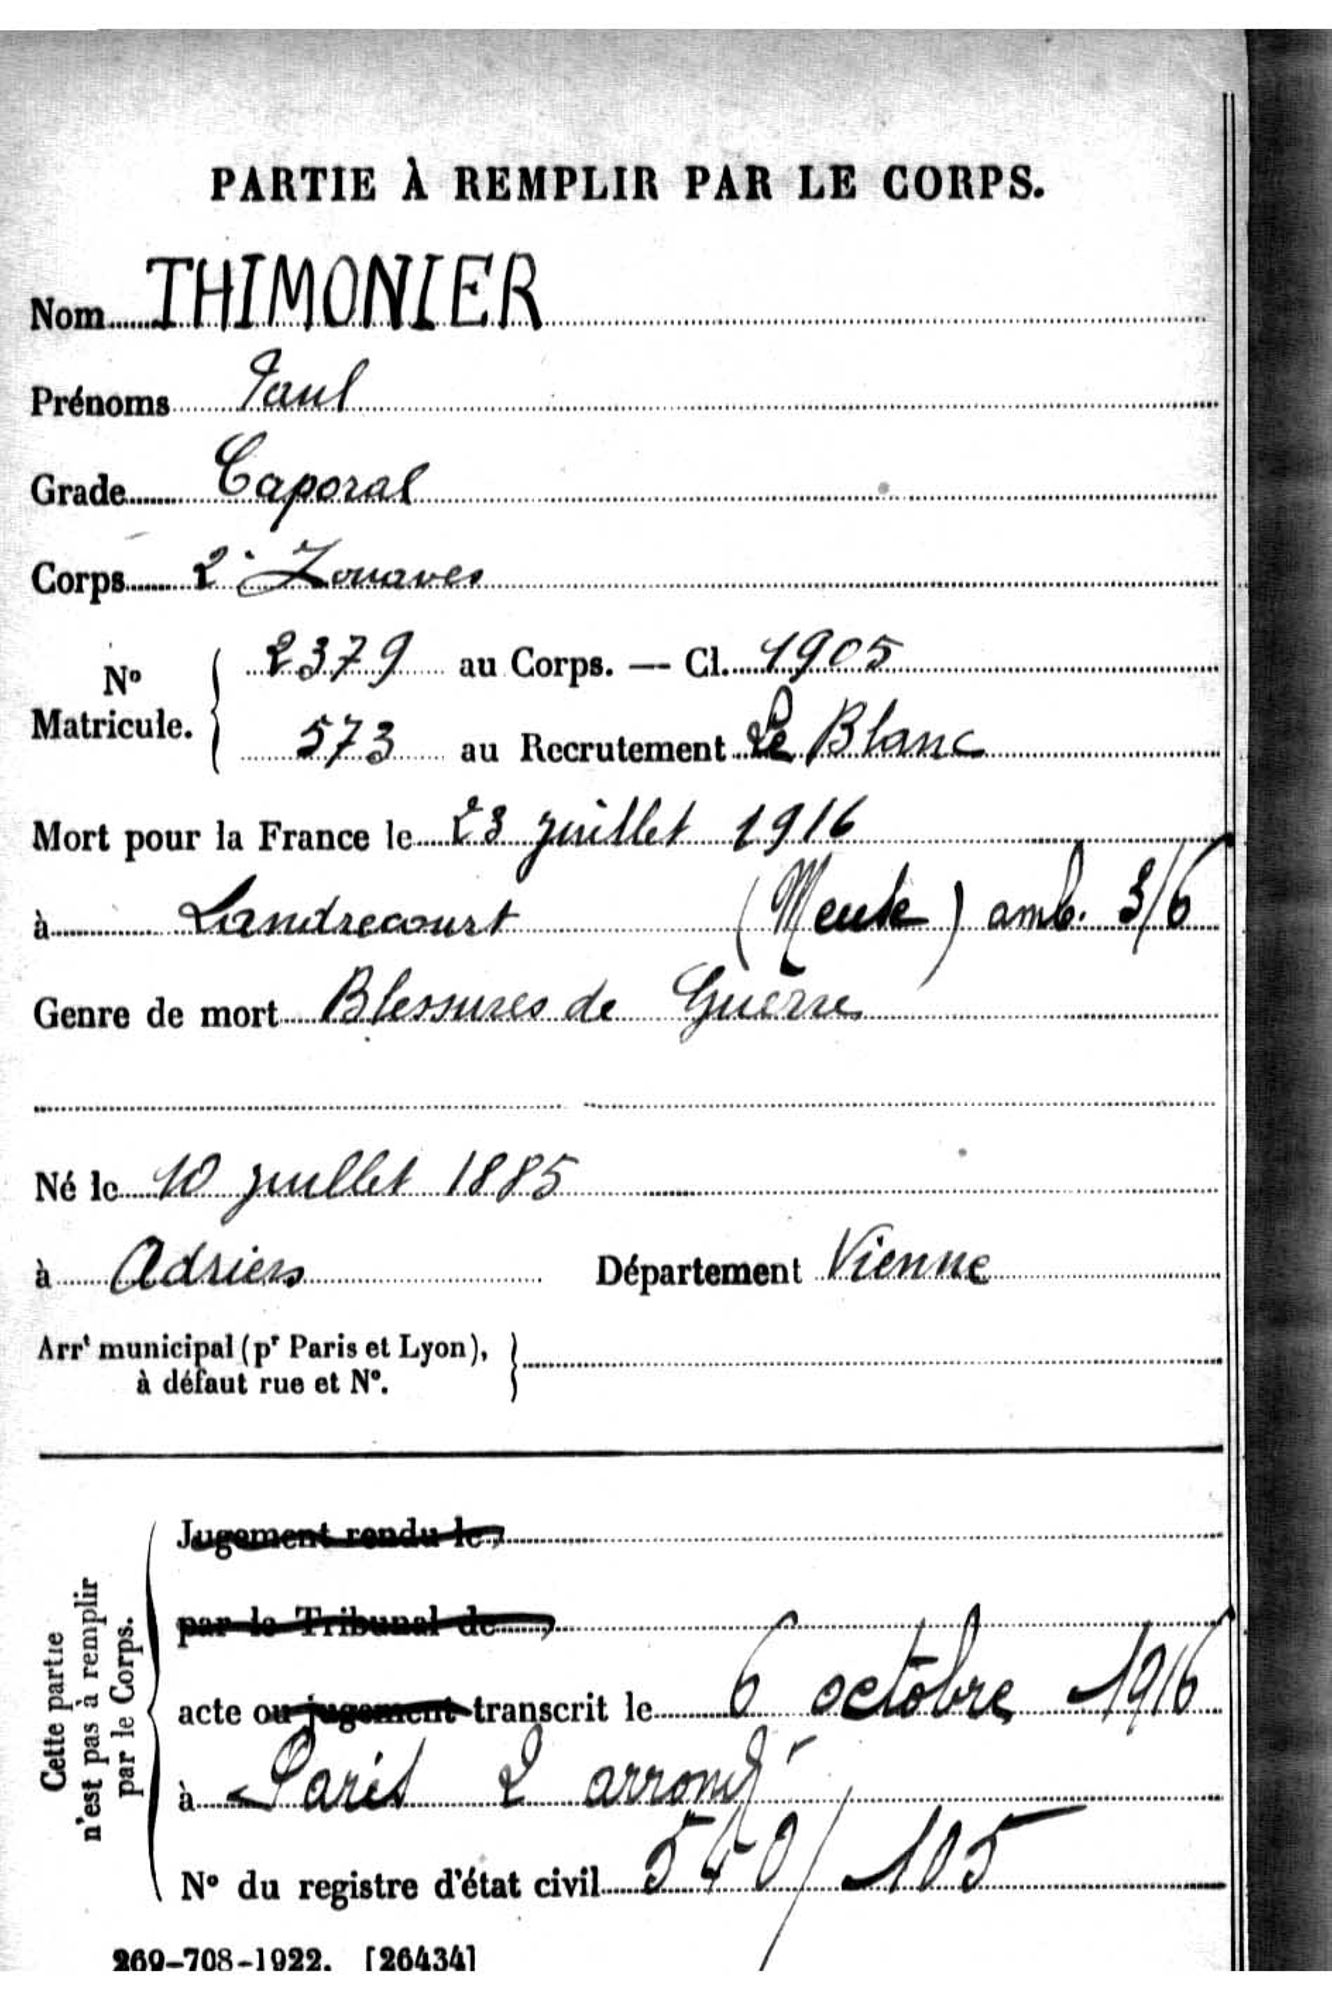 PARTIE À REMPLIR PAR LE CORPS.
Nom THIMONIER
Prénoms Paul
Grade Caporal
Corps 2e Zouaves
No Matricule. 2379 au Corps. — Cl. 1905
573 au Recrutement Le Blanc
Mort pour la France le 23 juillet 1916
à Landrecourt (Meuse) amb. 3/6
Genre de mort Blessures de Guerre
Né le 10 juillet 1885
à Adriers Département Vienne
Arrt municipal (pr Paris et Lyon),
à défaut rue et No.
Cette partie
n'est pas à remplir
par le Corps.
Jugement rendu le
par le Tribunal de
acte ou jugement transcrit le 6 octobre 1916
à Paris 2 arrondt
No du registre d'état civil 540/105
269-708-1922. [26434]